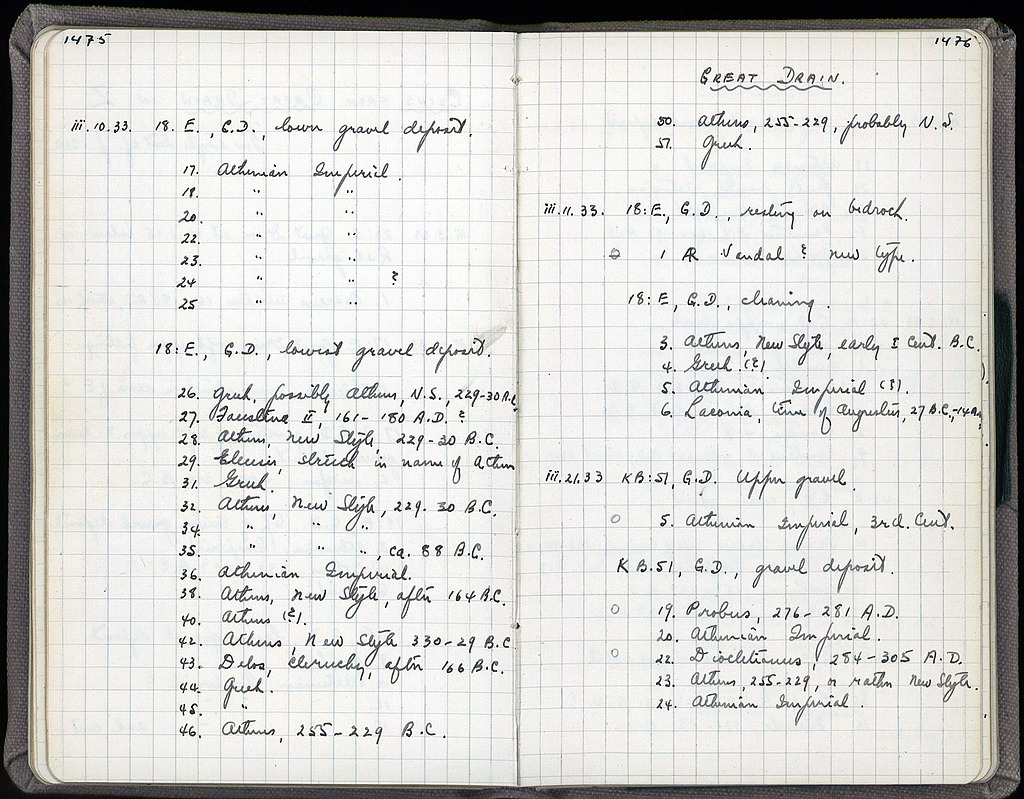 1475
iii.10.33. 18.E., G.D., lower gravel deposit.
17. Athenian Imperial.
18. " "
20. " "
22. " "
23. " "
24 " " ?
25 " "
18:E., G.D., lowest gravel deposit.
26. Greek, possibly Athens, N.S., 229-30 B.C.
27. Faustina II, 161-180 A.D. ?
28. Athens, New Style, 229-30 B.C.
29. Eleusis, struck in name of Athens
31. Greek.
32. Athens, New Style, 229-30 B.C.
34. " " "
35. " " ", ca. 88 B.C.
36. Athenian Imperial.
38. Athens, New Style, after 164 B.C.
40. Athens (?).
42. Athens, New Style 330-29 B.C.
43. Delos, cleruchy, after 166 B.C.
44. Greek.
45. "
46. Athens, 255-229 B.C.
1476
GREAT DRAIN.
50. Athens, 255-229, probably N.S.
51. Greek.
iii.11.33. 18:E., G.D., resting on bedrock.
1 AR Vandal ? new type.
18:E, G.D., cleaning.
3. Athens, New Style, early I Cent. B.C.
4. Greek (?)
5. Athenian Imperial (?).
6. Laconia, time of Augustus, 27 B.C.-14 A.D.
iii.21.33 KB:51, G.D. Upper gravel.
5. Athenian Imperial, 3rd. Cent.
KB:51, G.D., gravel deposit.
19. Probus, 276-281 A.D.
20. Athenian Imperial.
22. Diocletianus, 284-305 A.D.
23. Athens, 255-229, or rather New Style.
24. Athenian Imperial.